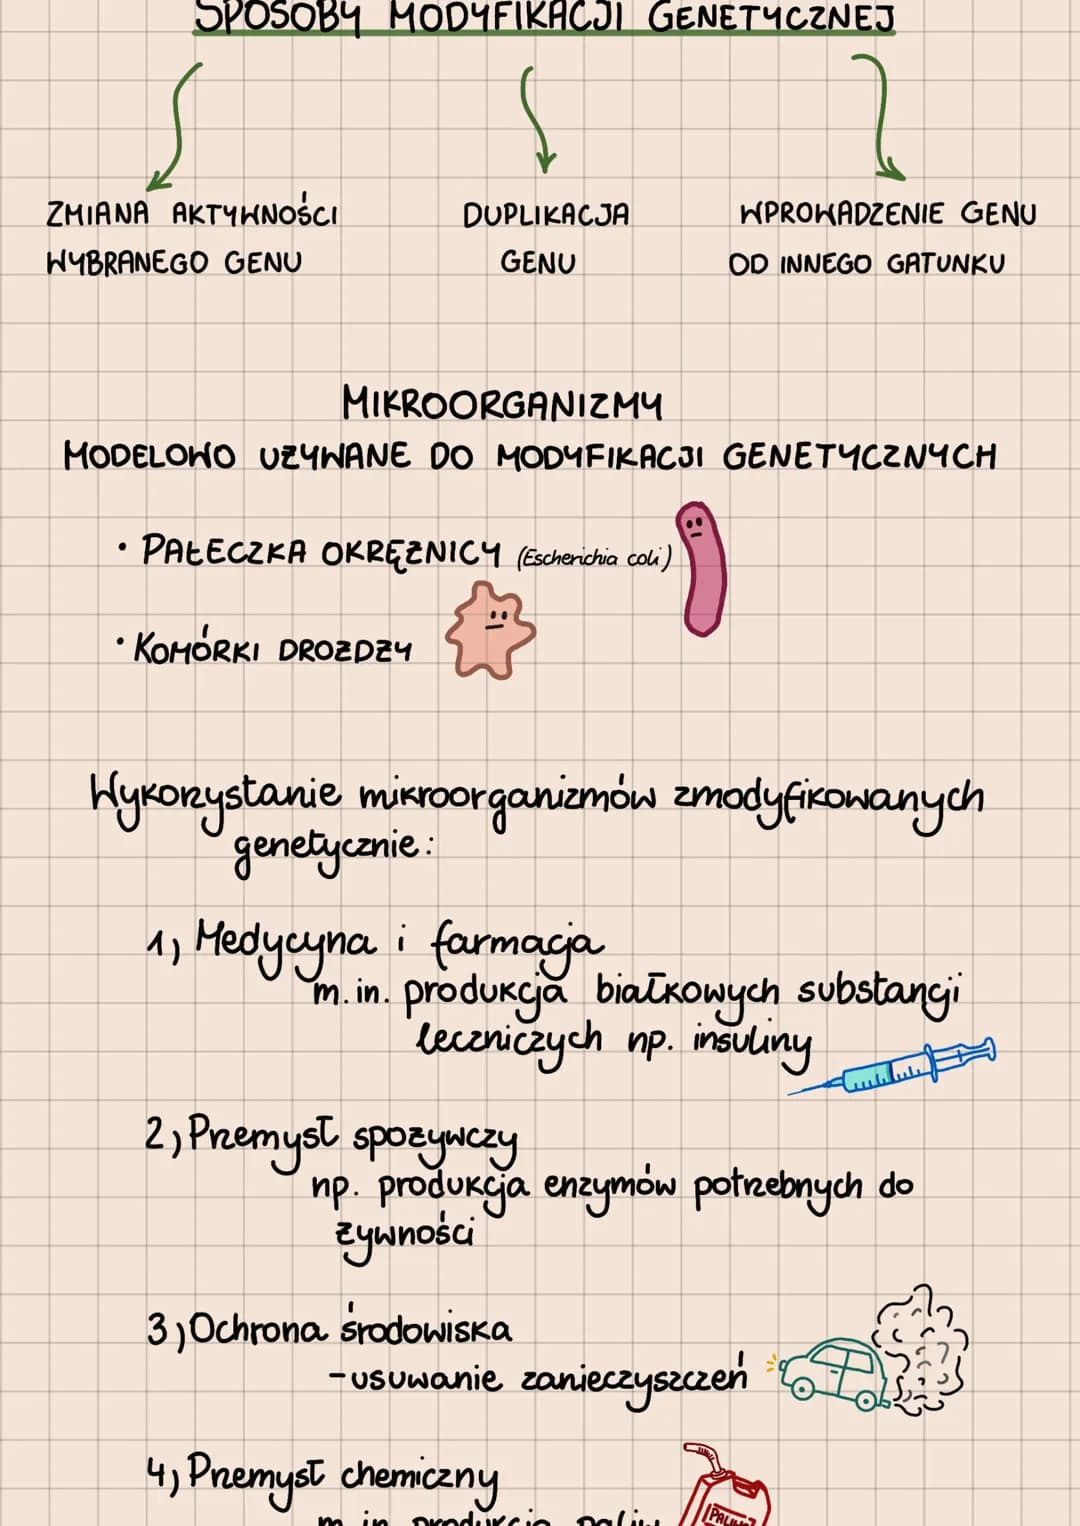 SPOSOBY MODYFIKACJI GENETYCZNEJ
ZMIANA AKTYWNOŚCI
WYBRANEGO GENU
DUPLIKACJA
GENU
WPROWADZENIE GENU
OD INNEGO GATUNKU
MIKROORGANIZMY
MODELOWO UŻYWANE DO MODYFIKACJI GENETYCZNYCH
• PAŁECZKA OKRĘŻNICY (Escherichia coli)
• KOMÓRKI DROŻDŻY
Wykorzystanie mikroorganizmów zmodyfikowanych
genetycznie:
1) Medycyna i farmacja
m.in. produkcja białkowych substancji
leczniczych np. insuliny
2) Przemysł spożywczy
np. produkcja enzymów potrzebnych do
żywności
3) Ochrona środowiska
-usuwanie zanieczyszczeń
4) Przemysł chemiczny
m.in. produkcja paliw
PALIWO